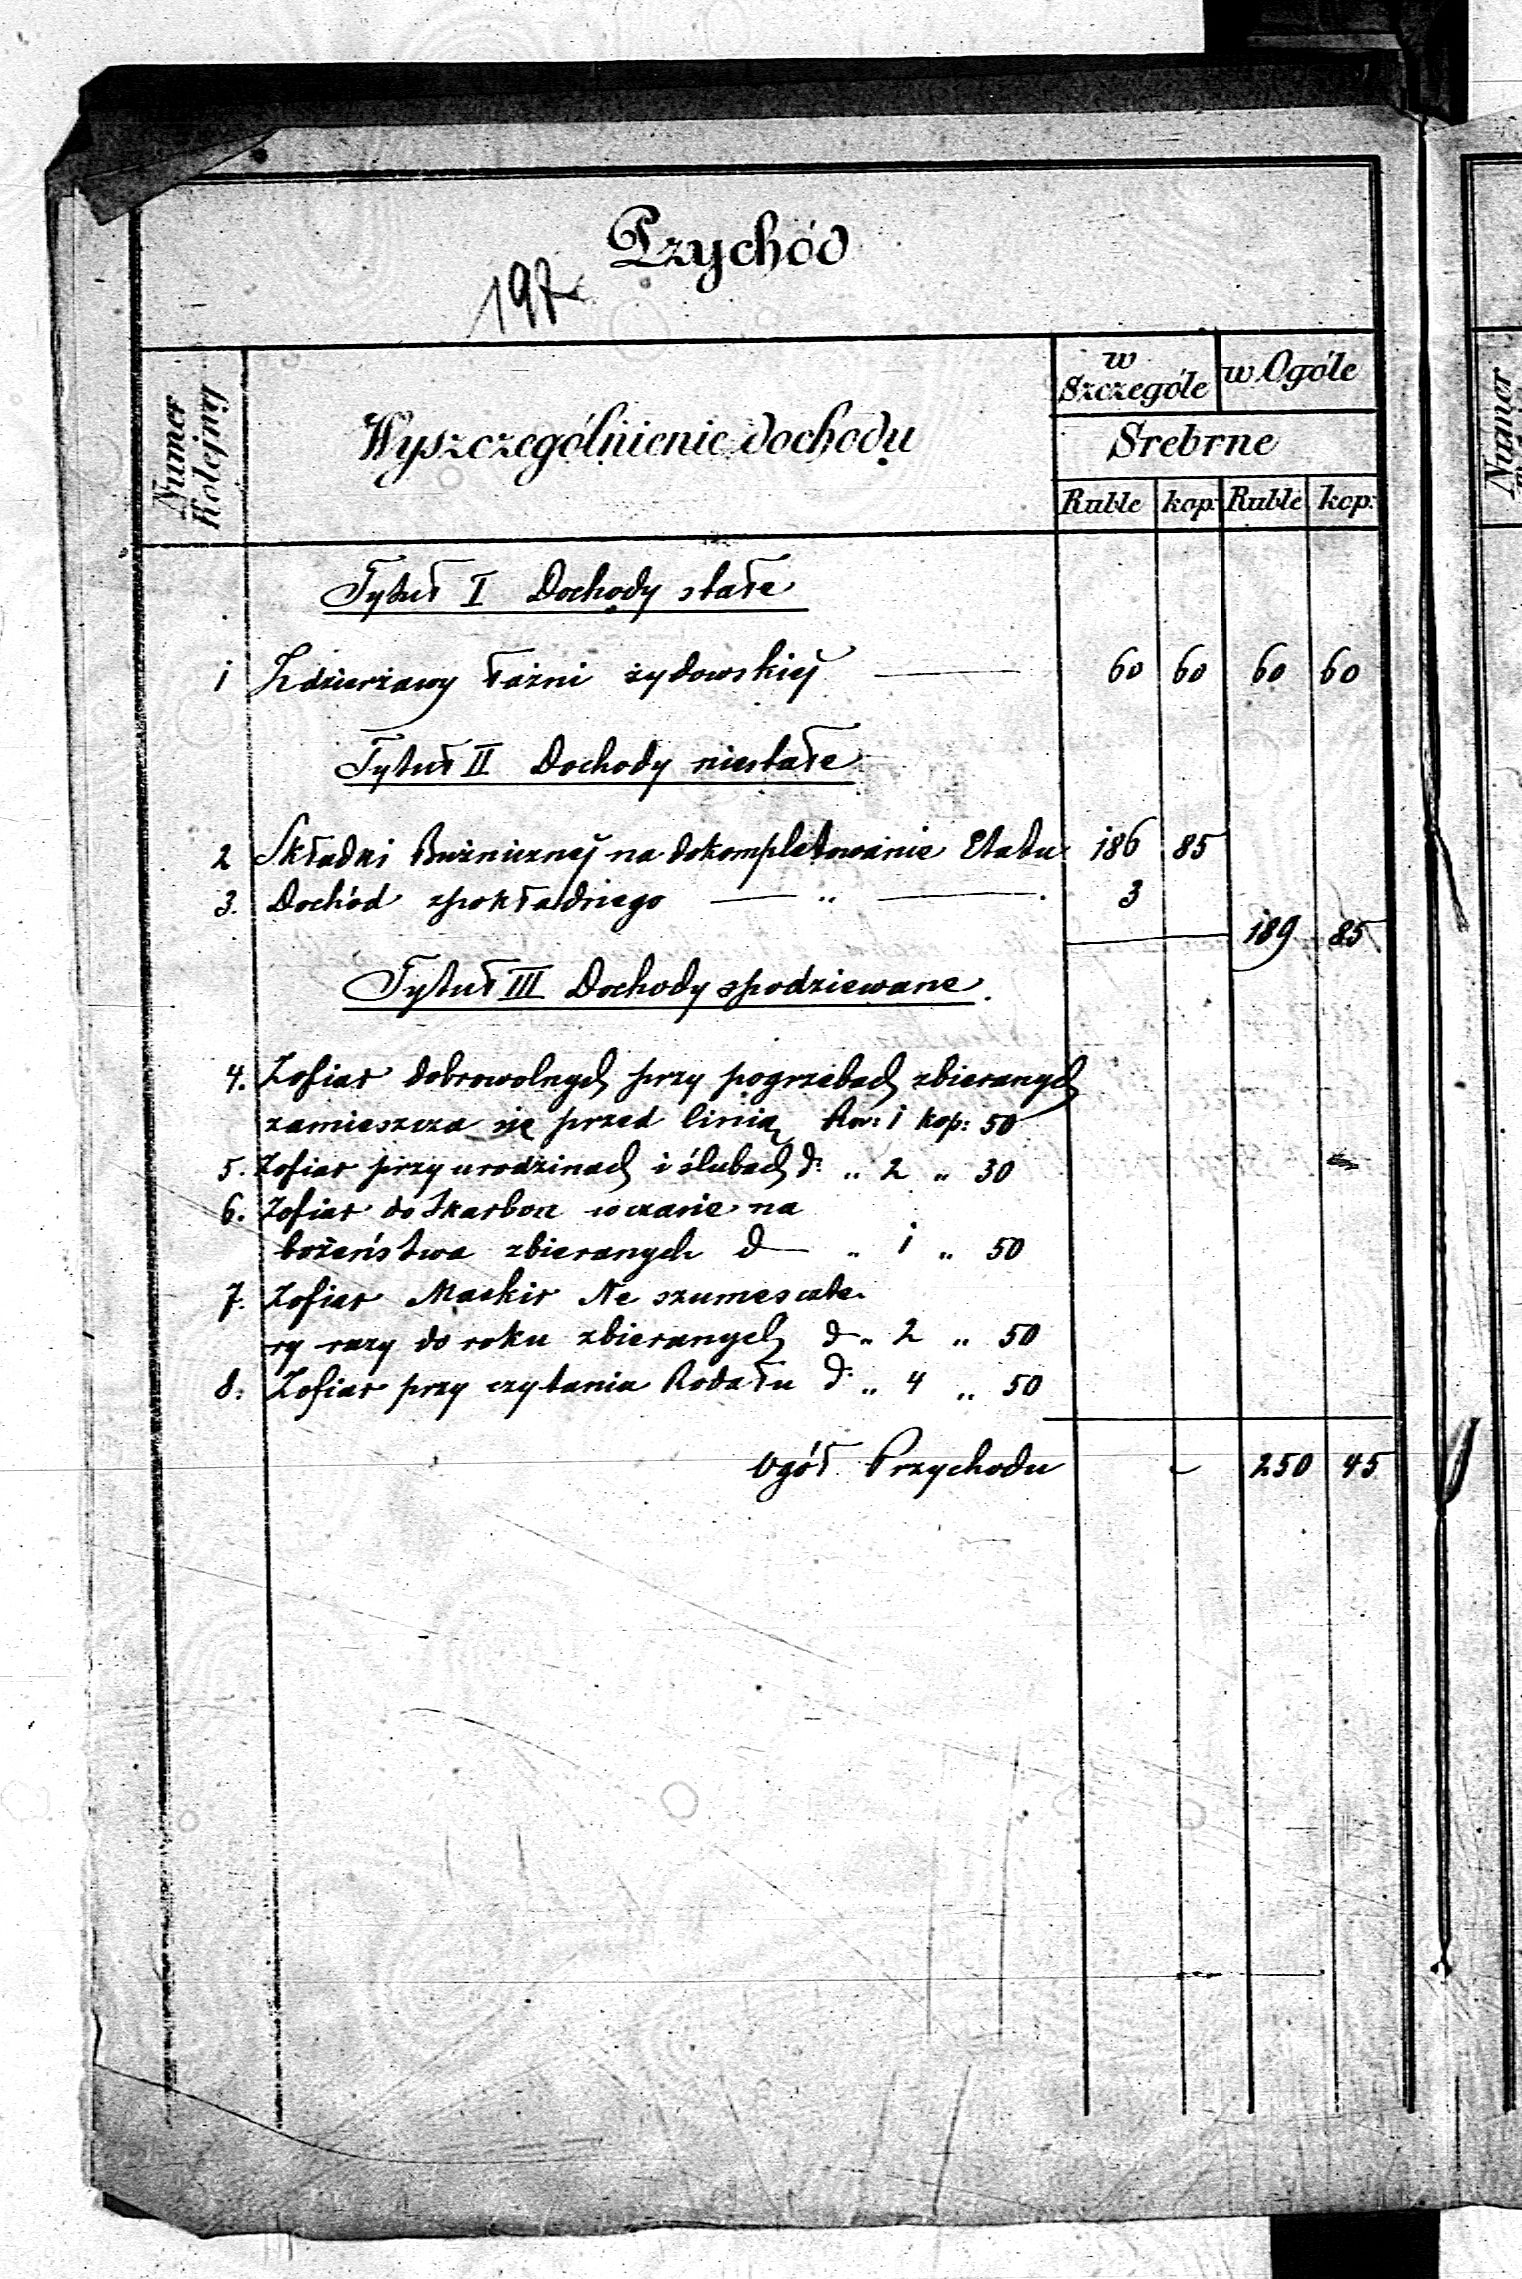 Przychód
197
Numer Kolejny
Wyszczególnienie dochodu
w Szczególe
w Ogóle
Srebrne
Ruble kop: Ruble kop:
Tytuł I Dochody stałe
1 Z dzierżawy łaźni żydowskiej 60 60 60 60
Tytuł II Dochody niestałe
2 Składki Bużnicznej na dokompletowanie Etatu 186 85
3. Dochód zpokładnego — " — 3
189 85
Tytuł III Dochody spodziewane.
4. Zofiar dobrowolnych przy pogrzebach zbieranych
zamieszcza się przed linią Rs: 1 kop: 50
5. Zofiar przy urodzinach i ślubach d: " 2 " 30
6. Zofiar do Skarbon w czasie na
bożeństwa zbieranych d — " 1 " 50
7. Zofiar Maskir Ne szumes czte
ry razy do roku zbieranych d " 2 " 50
8. Zofiar przy czytania Rodału d: " 4 " 50
Ogół Przychodu - 250 45
Numer